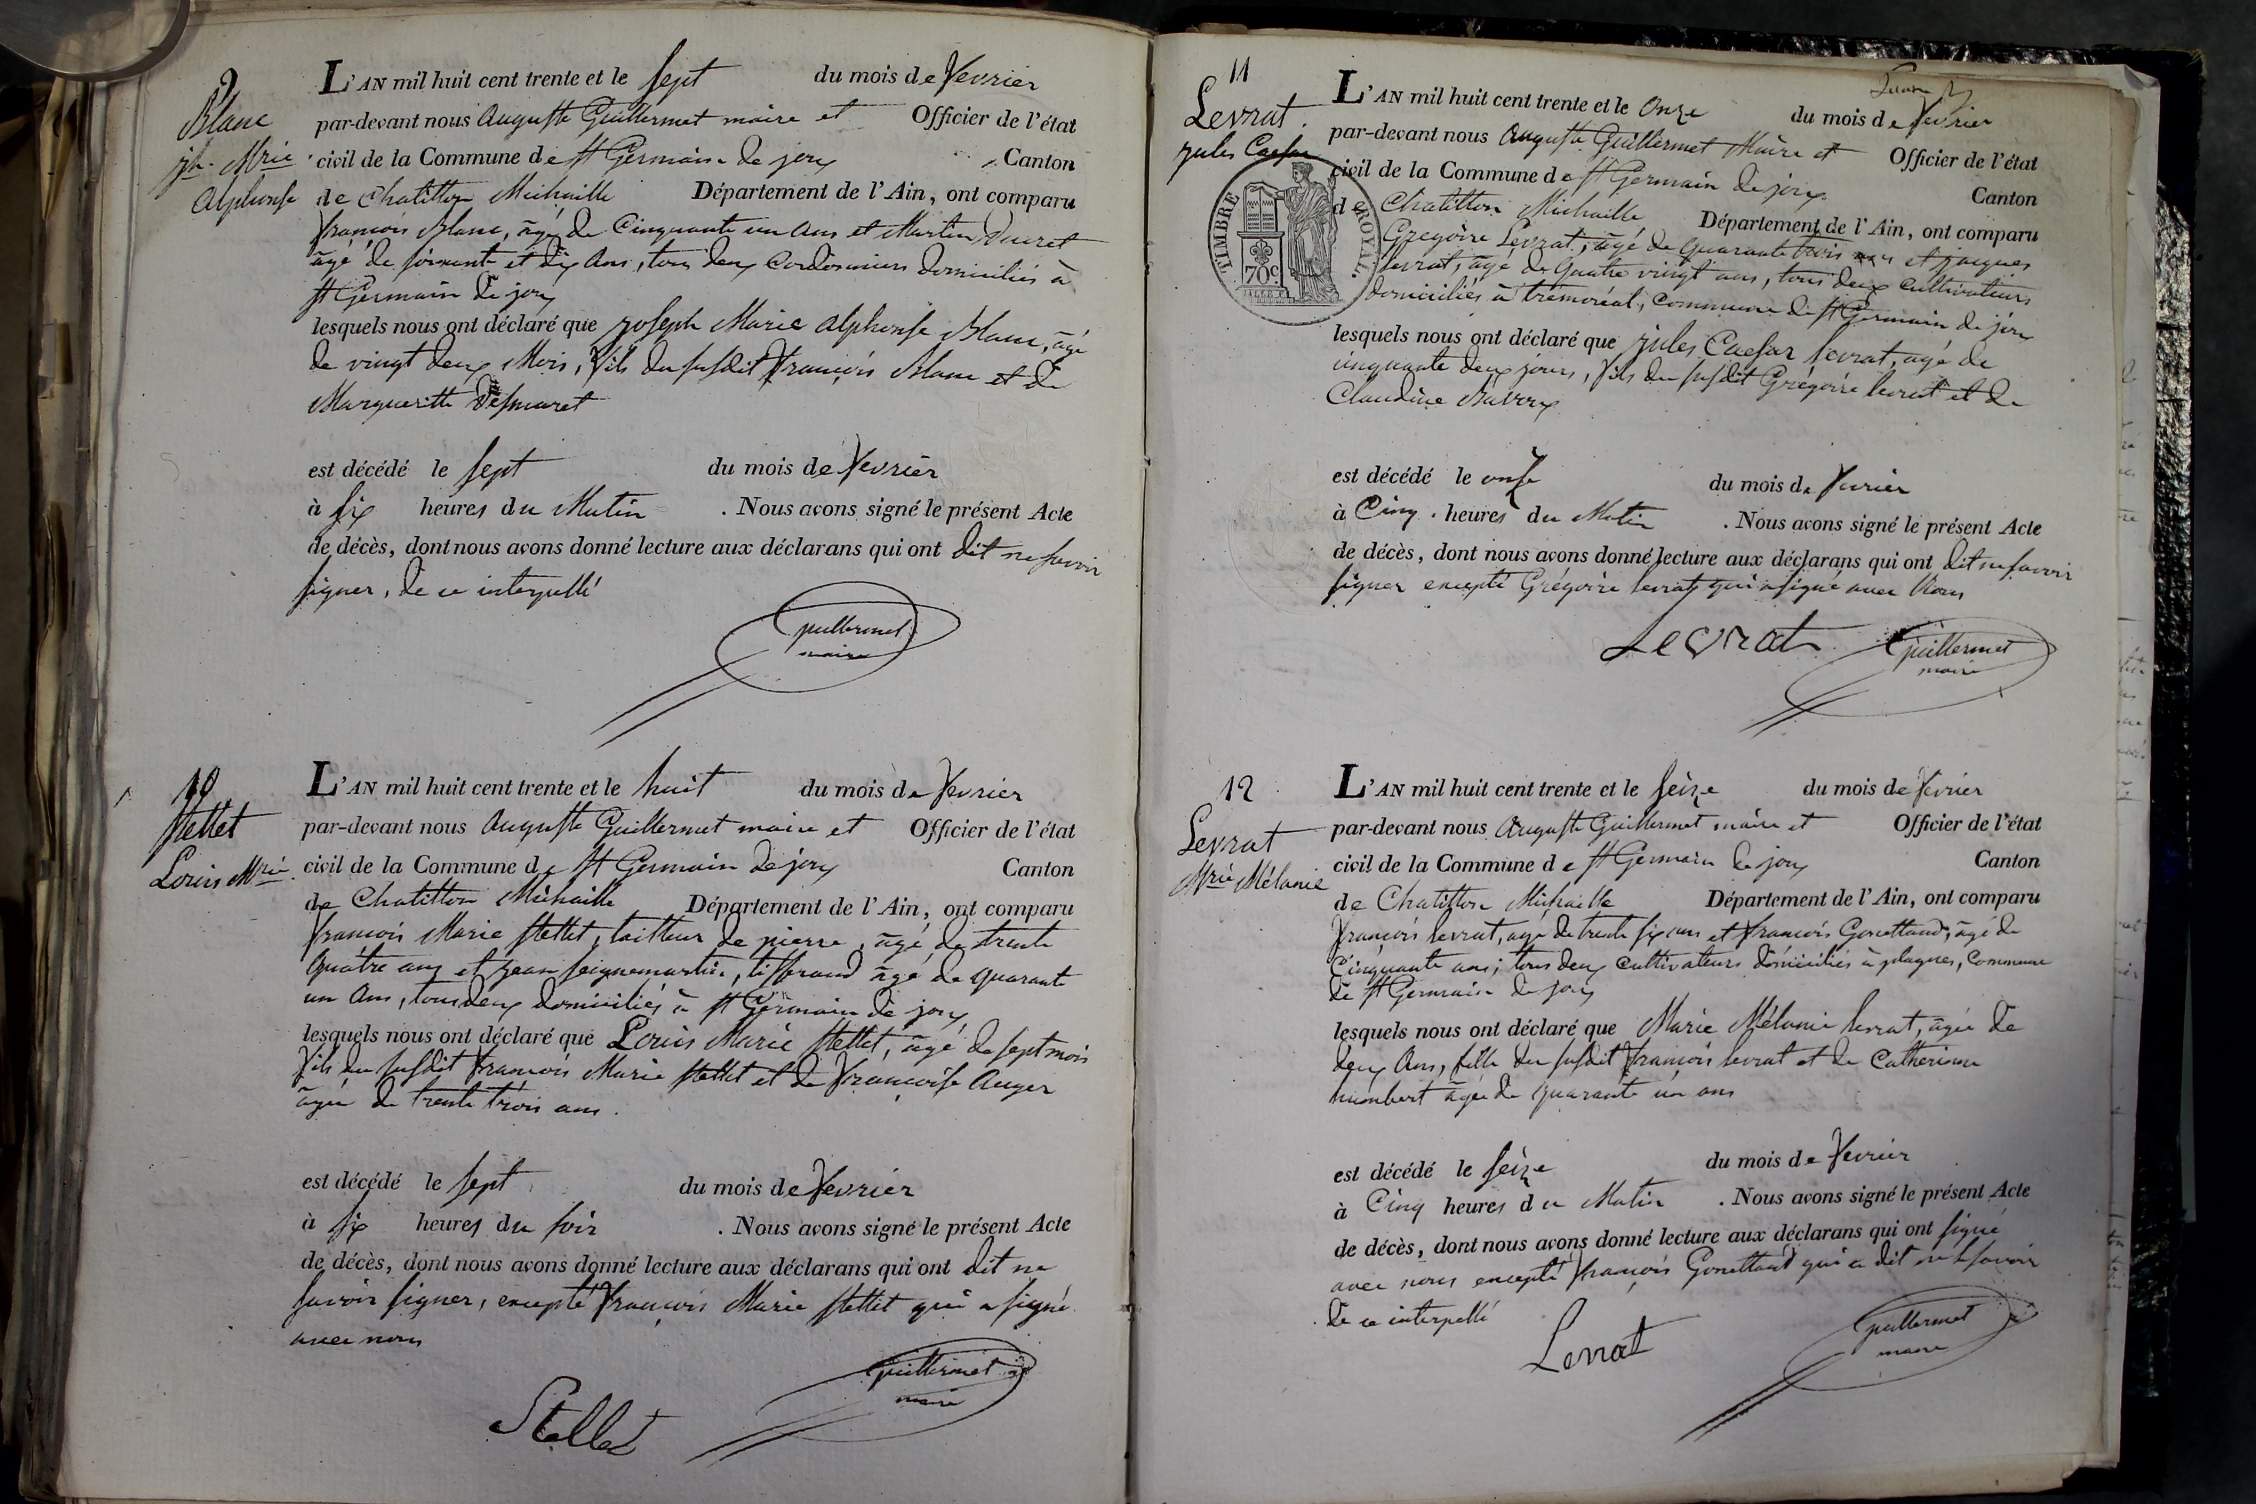 9
Blanc
jh. Mrie
Alphonse
L'AN mil huit cent trente et le sept du mois de fevrier
par-devant nous Auguste Guillermet maire et Officier de l'état
civil de la Commune de St Germain de joux Canton
de Chatillon Michaille Département de l'Ain, ont comparu
françois Blanc, âgé de Cinquante un ans et Martin Ducret
âgé de soixante et dix ans, tous deux Cordonniers domiciliés à
St Germain de joux
lesquels nous ont déclaré que joseph Marie Alphonse Blanc, âgé
de vingt deux Mois, fils du susdit françois Blanc et de
Marguerite Desmaret
est décédé le sept du mois de fevrier
à six heures du Matin . Nous avons signé le présent Acte
de décès, dont nous avons donné lecture aux déclarans qui ont dit ne savoir
signer, de ce interpellé
Guillermet
maire
10
Stellet
Louis Mrie
L'AN mil huit cent trente et le huit du mois de fevrier
par-devant nous Auguste Guillermet maire et Officier de l'état
civil de la Commune de St Germain de joux Canton
de Chatillon Michaille Département de l'Ain, ont comparu
françois Marie Stellet, tailleur de pierre, âgé de trente
quatre ans et jean seignemartin, tisserand âgé de quarante
un Ans, tous deux domiciliés à St Germain de joux
lesquels nous ont déclaré que Louis Marie Stellet, âgé de sept mois
fils du susdit françois Marie Stellet et de françoise Auger
âgée de trente trois ans.
est décédé le sept du mois de fevrier
à six heures du soir . Nous avons signé le présent Acte
de décès, dont nous avons donné lecture aux déclarans qui ont dit ne
savoir signer, excepté françois Marie Stellet qui a signé
avec nous
Guillermet
maire
Stellet
11
Levrat
jules Caesar
TIMBRE ROYAL.
70c
L'AN mil huit cent trente et le Onze du mois de fevrier
par-devant nous Auguste Guillermet Maire et Officier de l'état
civil de la Commune de St Germain de joux Canton
d Chatillon Michaille Département de l'Ain, ont comparu
Gregoire Levrat, âgé de quarante trois ans et jacques
levrat, âgé de Quatre vingt ans, tous deux cultivateurs
domiciliés à trémoréal, commune de St Germain de joux
lesquels nous ont déclaré que jules Caesar levrat, agé de
cinquante deux jours, fils du susdit Grégoire levrat et de
Claudine Baveux
est décédé le onze du mois de fevrier
à Cinq heures du Matin . Nous avons signé le présent Acte
de décès, dont nous avons donné lecture aux déclarans qui ont dit ne savoir
signer excepté Grégoire levrat qui a signé avec Nous
Levrat
Guillermet
maire
12
Levrat
Mrie Mélanie
L'AN mil huit cent trente et le seize du mois de fevrier
par-devant nous Auguste Guillermet maire et Officier de l'état
civil de la Commune de St Germain de joux Canton
de Chatillon Michaille Département de l'Ain, ont comparu
françois levrat, âgé de trente six ans et françois Gonettand, âgé de
Cinquante ans; tous deux cultivateurs domiciliés à plagnes, Commune
de St Germain de joux
lesquels nous ont déclaré que Marie Mélanie levrat, âgée de
deux Ans, fille du susdit françois levrat et de Catherine
humbert âgée de quarante un ans
est décédé le seize du mois de fevrier
à Cinq heures du Matin . Nous avons signé le présent Acte
de décès, dont nous avons donné lecture aux déclarans qui ont signé
avec nous excepté françois Gonettand qui a dit ne savoir
de ce interpellé
Levrat
Guillermet
maire